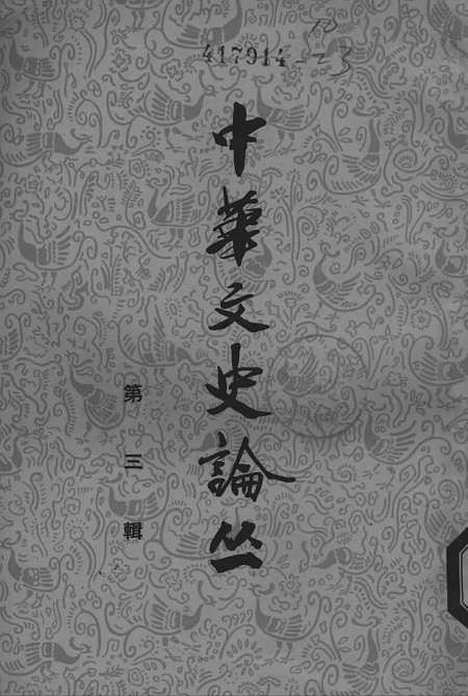 417914
中華文史論丛
第三輯